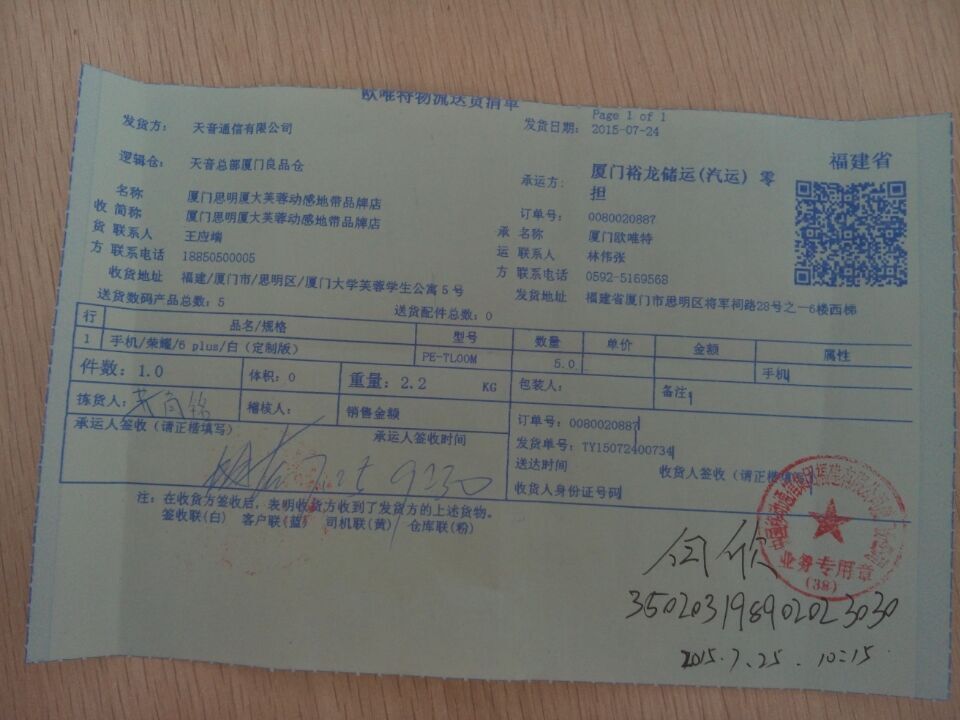 欧唯特物流送货清单
Page 1 of 1
发货方： 天音通信有限公司
发货日期： 2015-07-24
逻辑仓： 天音总部厦门良品仓
承运方： 厦门裕龙储运(汽运) 零担
福建省
收货方
名称 厦门思明厦大芙蓉动感地带品牌店
简称 厦门思明厦大芙蓉动感地带品牌店
联系人 王应端
联系电话 18850500005
收货地址 福建/厦门市/思明区/厦门大学芙蓉学生公寓5号
订单号： 0080020887
承运方
名称 厦门欧唯特
联系人 林伟张
联系电话 0592-5169568
发货地址 福建省厦门市思明区将军祠路28号之一6楼西梯
送货数码产品总数：5 送货配件总数：0
行 品名/规格 型号 数量 单价 金额 属性
1 手机/荣耀/6 plus/白（定制版） PE-TL00M 5.0 手机
件数：1.0 体积：0 重量：2.2 KG 包装人： 备注：
拣货人： 稽核人： 销售金额
订单号：0080020887
发货单号：TY15072400734
承运人签收（请正楷填写） 承运人签收时间
送达时间 收货人签收（请正楷填写）
收货人身份证号码
9:30
注：在收货方签收后，表明收货方收到了发货方的上述货物。
签收联(白) 客户联(蓝) 司机联(黄) 仓库联(粉)
业务专用章
(38)
350203198902023030
2015.7.25. 10:15